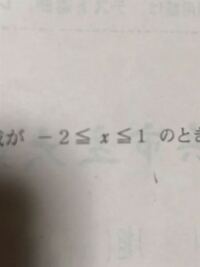 が −2≦x≦1 のとき